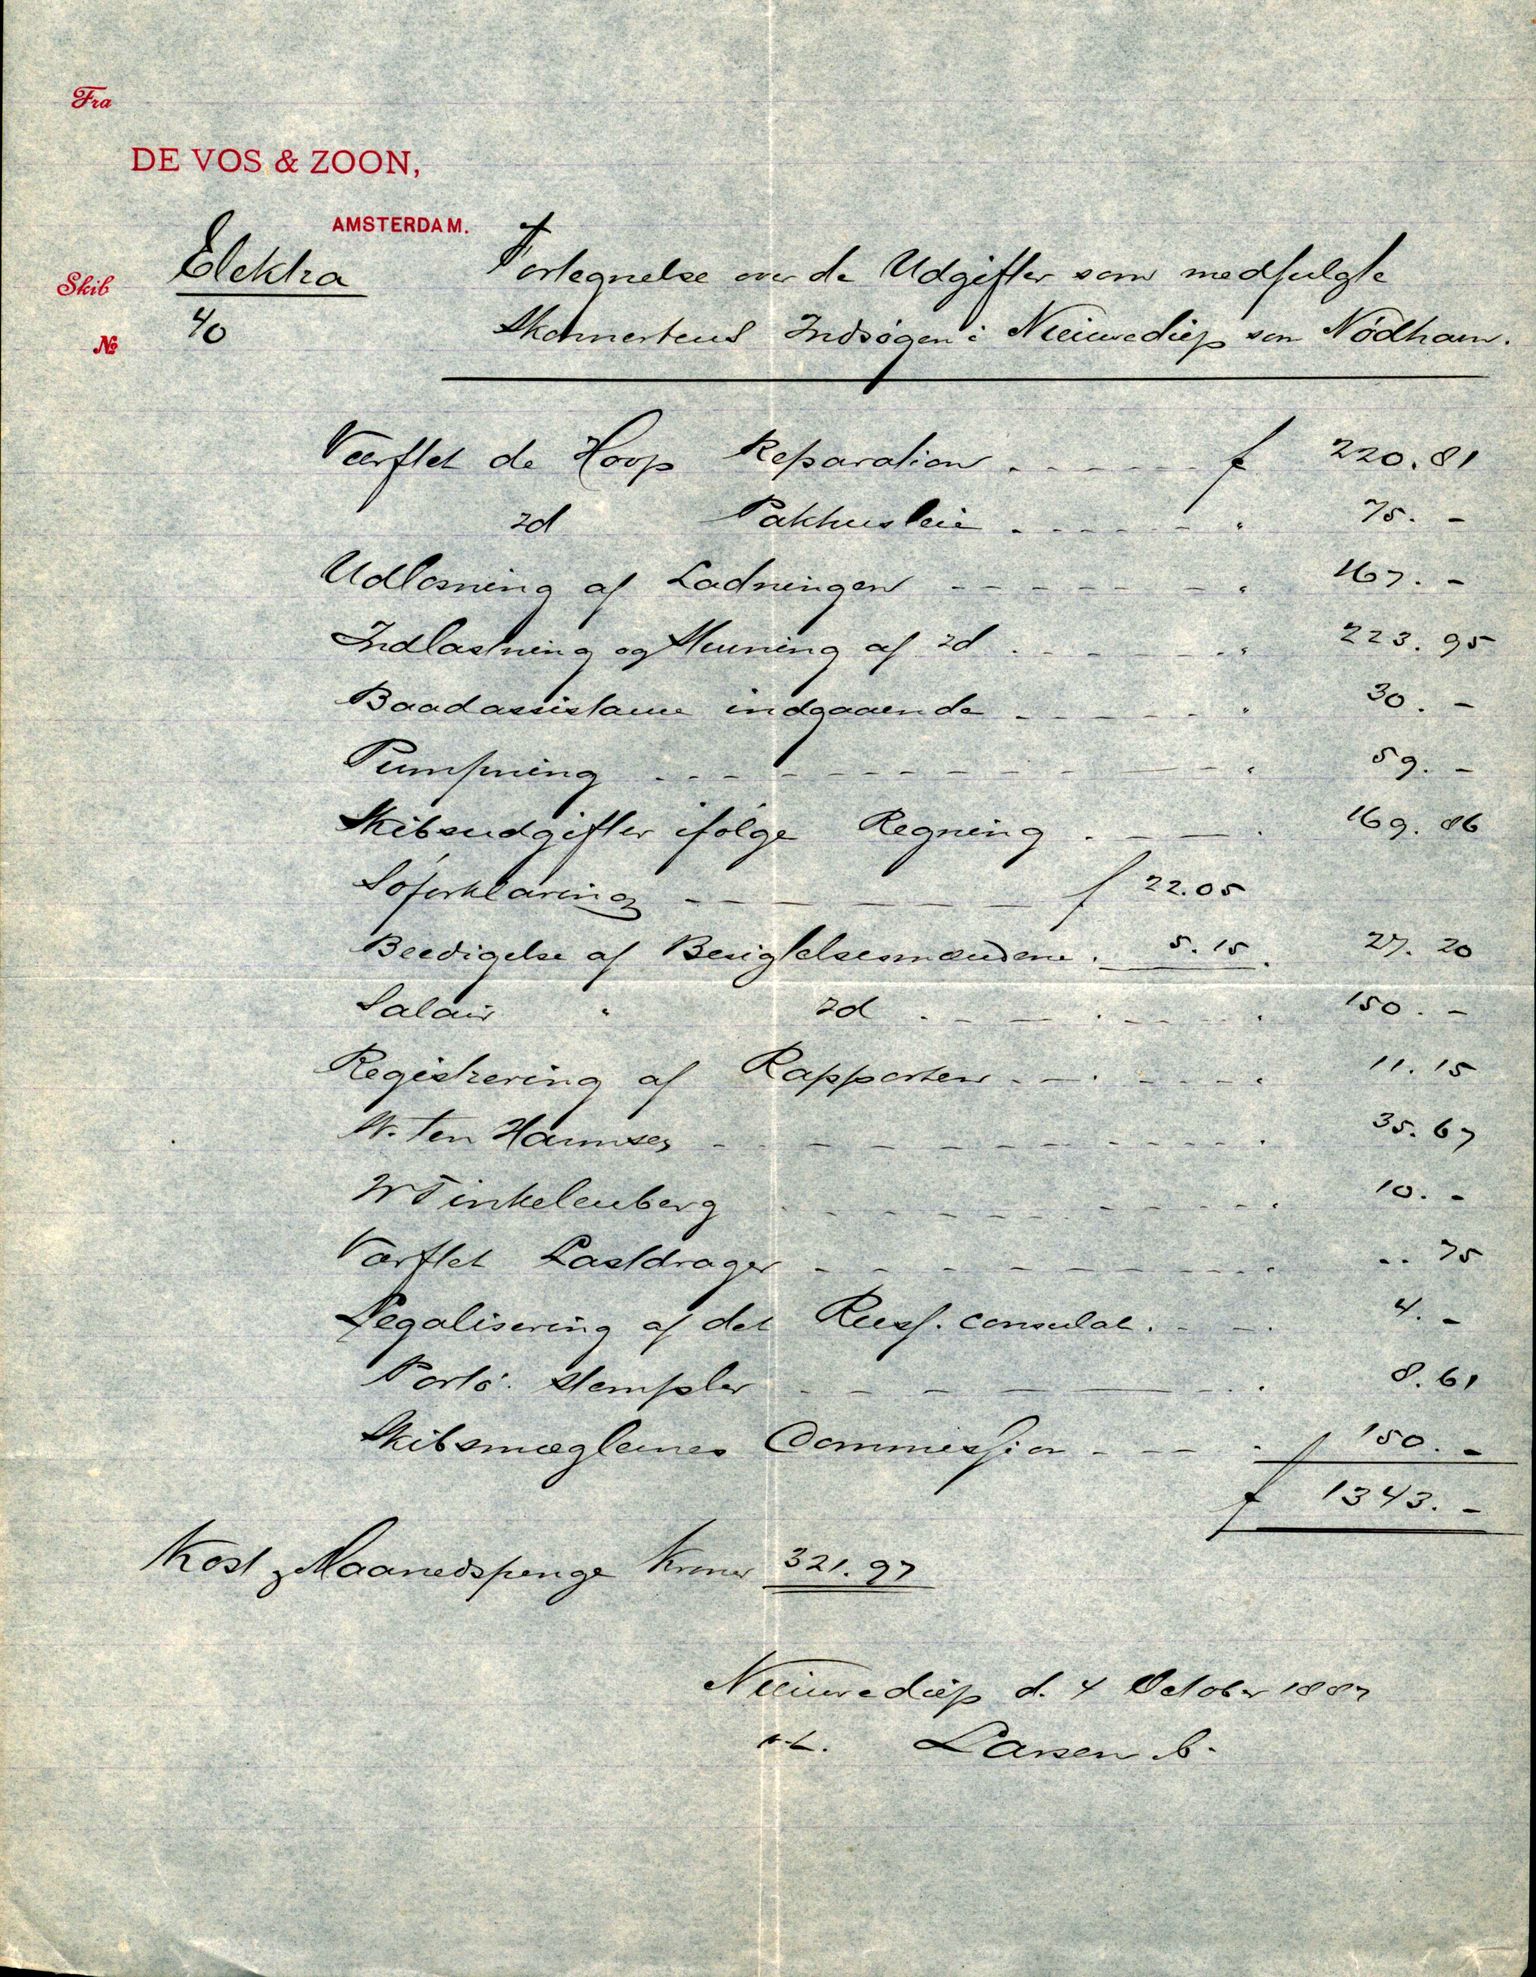 Fra
DE VOS & ZOON,
AMSTERDAM.
Skib Elektra
№ 40
Fortegnelse over de Udgifter som medfulgte
Skonnertens Indsøgen i Nieuwediep som Nödhavn.
Værftet de Hoop Reparation f 220.81
id Pakhusleie " 75. -
Udlosning af Ladningen " 167. -
Indlastning og Stuning af id " 223.95
Baadassistance indgaaende " 30. -
Pumpning " 59. -
Skibsudgifter ifölge Regning " 169.86
Söforklaring f 22.05
Beedigelse af Besigtelsesmændene " 5.15 " 27.20
Salair " id " 150. -
Registrering af Rapporten " 11.15
W. Ten Harmsen " 35.67
W Finkelenberg " 10. -
Værftet Lastdrager " -. 75
Legalisering af det Russ. consulat. " 4. -
Porto. stempler " 8.61
Skibsmæglernes Commission " 150. -
f 1343. -
Kost & Maanedspenge Kroner 321.97
Nieuwediep d. 4 October 1887
Larsen